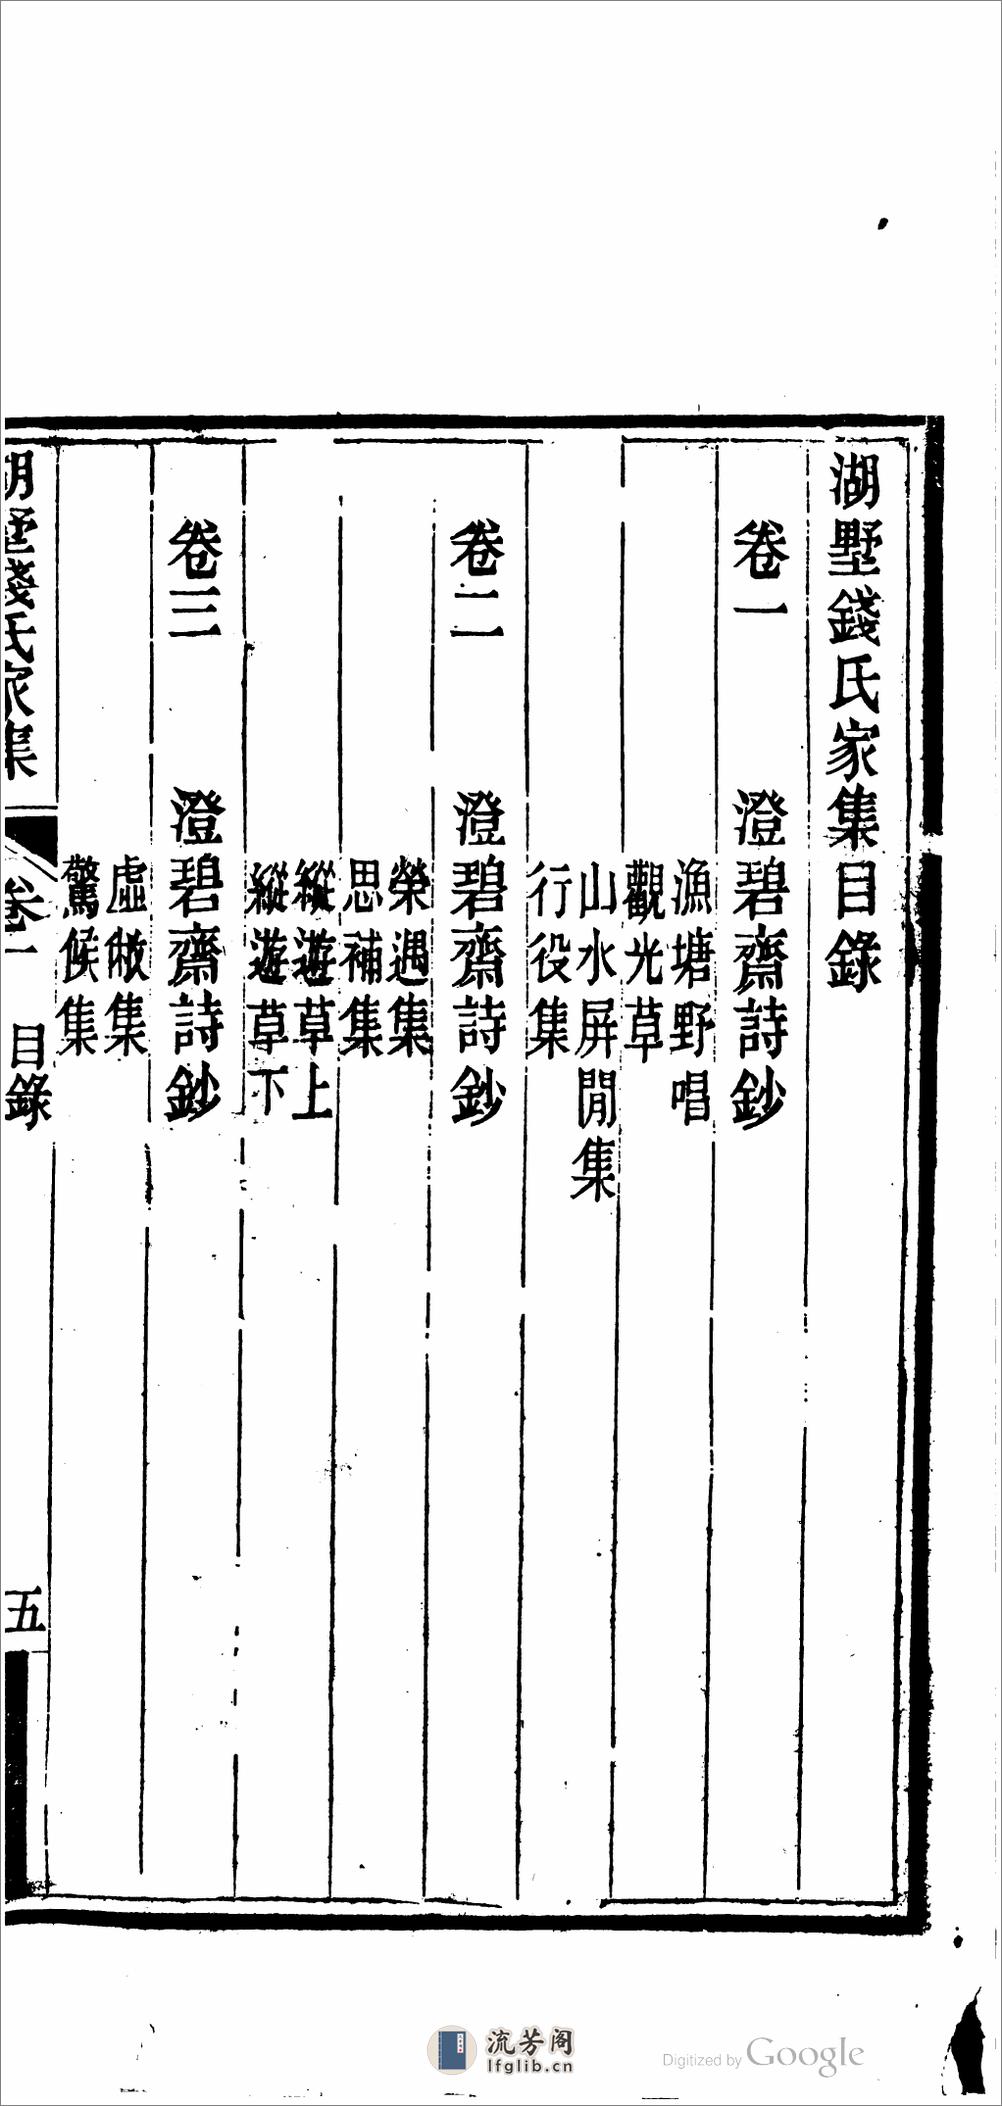 湖墅錢氏家集目錄
卷一 澄碧齋詩鈔
漁塘野唱
觀光草
山水屏閒集
行役集
卷二 澄碧齋詩鈔
榮遇集
思補集
縱遊草上
縱遊草下
卷三 澄碧齋詩鈔
虛懒集
驚候集
湖墅錢氏家集 卷一 目錄 五
流芳阁
lfglib.cn
Digitized by Google